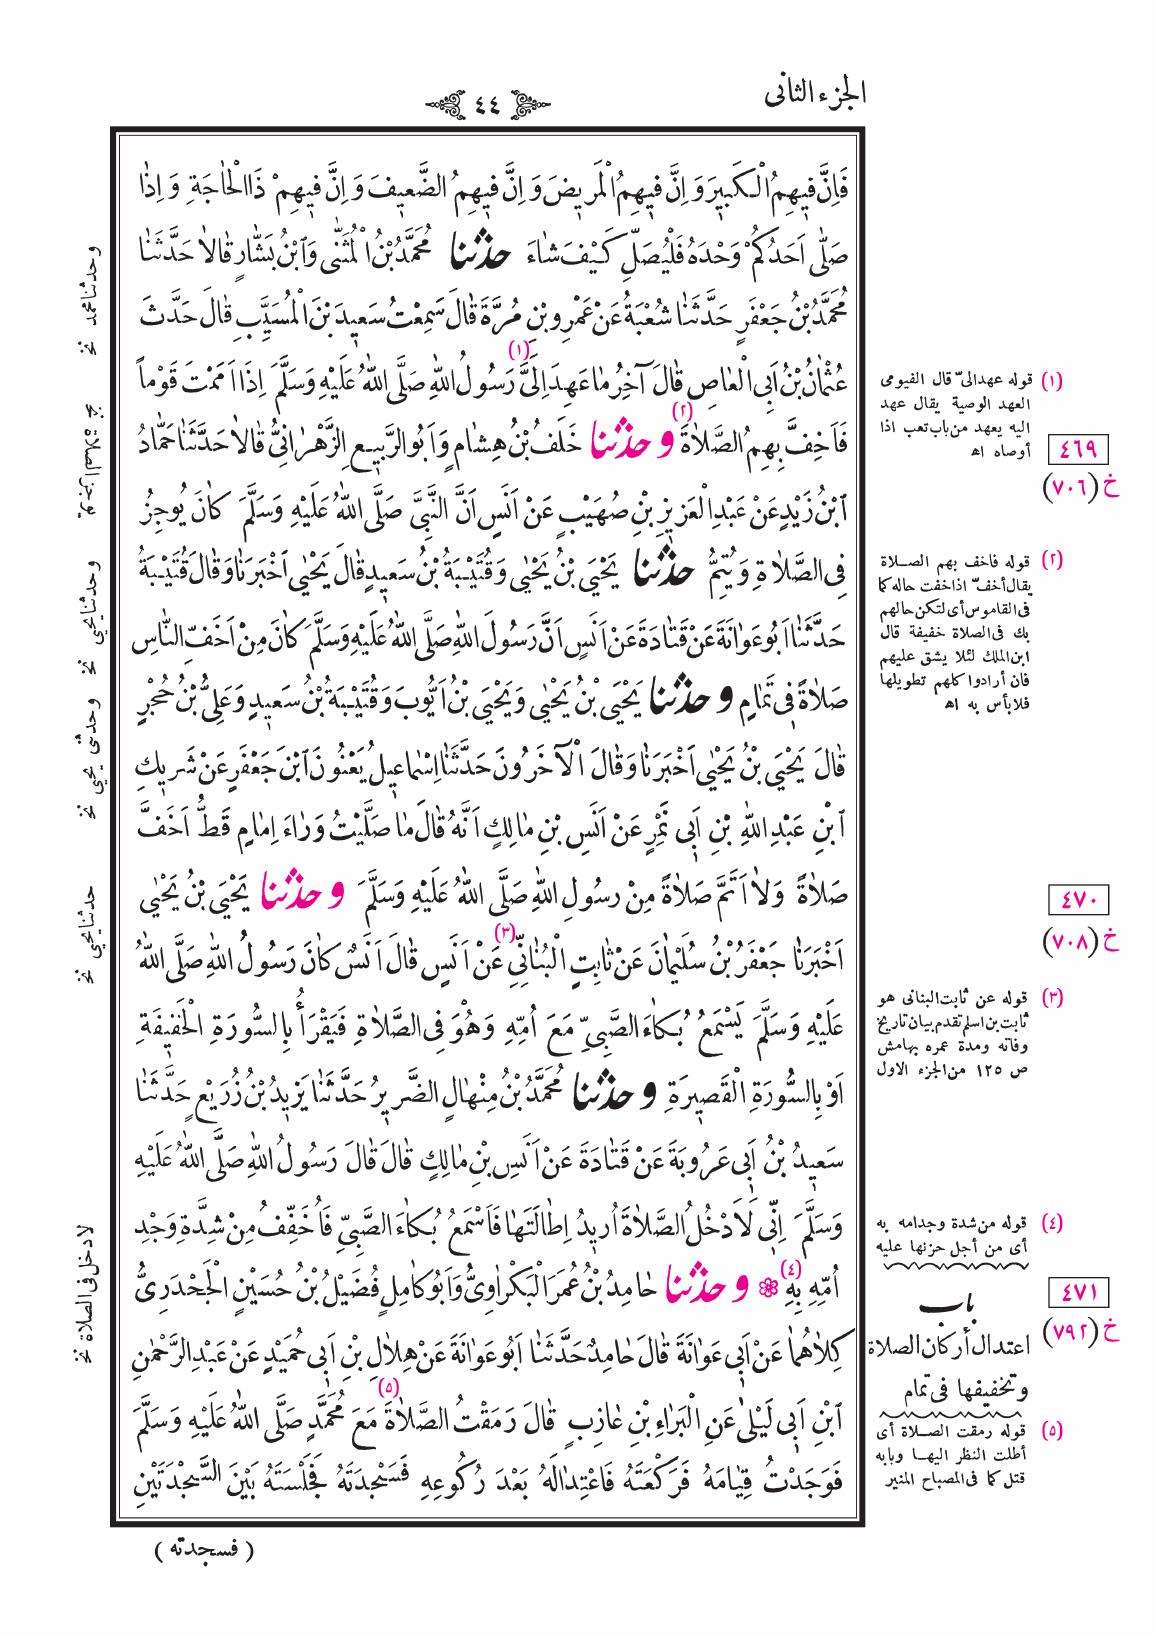 الجزء الثانى
٤٤
فَاِنَّ فيهِمُ الْكَبيرَ وَ اِنَّ فيهِمُ الْمَريضَ وَ اِنَّ فيهِمُ الضَّعيفَ وَ اِنَّ فيهِمْ ذَا الْحاجَةِ وَ اِذا
صَلّٰى اَحَدُكُمْ وَحْدَهُ فَلْيُصَلِّ كَيْفَ شاءَ حدثنا مُحَمَّدُ بْنُ الْمُثَنّٰى وَابْنُ بَشّارٍ قالا حَدَّثَنا
مُحَمَّدُ بْنُ جَعْفَرٍ حَدَّثَنا شُعْبَةُ عَنْ عَمْرِو بْنِ مُرَّةَ قالَ سَمِعْتُ سَعيدَ بْنَ الْمُسَيَّبِ قالَ حَدَّثَ
عُثْمانُ بْنُ اَبِى الْعاصِ قالَ آخِرُ ما عَهِدَ اِلَىَّ (١) رَسُولُ اللهِ صَلَّى اللهُ عَلَيْهِ وَسَلَّمَ اِذا اَمَمْتَ قَوْماً
فَاَخِفَّ بِهِمُ الصَّلاةَ (٢) و حدثنا خَلَفُ بْنُ هِشامٍ وَ اَبُو الرَّبيعِ الزَّهْرانِىُّ قالا حَدَّثَنا حَمّادُ
ابْنُ زَيْدٍ عَنْ عَبْدِ الْعَزيزِ بْنِ صُهَيْبٍ عَنْ اَنَسٍ اَنَّ النَّبِىَّ صَلَّى اللهُ عَلَيْهِ وَسَلَّمَ كانَ يُوجِزُ
فِى الصَّلاةِ وَ يُتِمُّ حدثنا يَحْيَى بْنُ يَحْيٰى وَ قُتَيْبَةُ بْنُ سَعيدٍ قالَ يَحْيٰى اَخْبَرَنا وَ قالَ قُتَيْبَةُ
حَدَّثَنا اَبُو عَوانَةَ عَنْ قَتادَةَ عَنْ اَنَسٍ اَنَّ رَسُولَ اللهِ صَلَّى اللهُ عَلَيْهِ وَسَلَّمَ كانَ مِنْ اَخَفِّ النّاسِ
صَلاةً فى تَمامٍ و حدثنا يَحْيَى بْنُ يَحْيٰى وَ يَحْيَى بْنُ اَيُّوبَ وَ قُتَيْبَةُ بْنُ سَعيدٍ وَ عَلِىُّ بْنُ حُجْرٍ
قالَ يَحْيَى بْنُ يَحْيٰى اَخْبَرَنا وَ قالَ الْآخَرُونَ حَدَّثَنا اِسْماعيلُ يَعْنُونَ ابْنَ جَعْفَرٍ عَنْ شَريكِ
ابْنِ عَبْدِ اللهِ بْنِ اَبى نَمِرٍ عَنْ اَنَسِ بْنِ مالِكٍ اَنَّهُ قالَ ما صَلَّيْتُ وَراءَ اِمامٍ قَطُّ اَخَفَّ
صَلاةً وَلا اَتَمَّ صَلاةً مِنْ رَسُولِ اللهِ صَلَّى اللهُ عَلَيْهِ وَسَلَّمَ و حدثنا يَحْيَى بْنُ يَحْيٰى
اَخْبَرَنا جَعْفَرُ بْنُ سُلَيْمانَ عَنْ ثابِتٍ الْبُنانِىِّ (٣) عَنْ اَنَسٍ قالَ اَنَسٌ كانَ رَسُولُ اللهِ صَلَّى اللهُ
عَلَيْهِ وَسَلَّمَ يَسْمَعُ بُكاءَ الصَّبِىِّ مَعَ اُمِّهِ وَ هُوَ فِى الصَّلاةِ فَيَقْرَأُ بِالسُّورَةِ الْخَفيفَةِ
اَوْ بِالسُّورَةِ الْقَصيرَةِ و حدثنا مُحَمَّدُ بْنُ مِنْهالٍ الضَّريرُ حَدَّثَنا يَزيدُ بْنُ زُرَيْعٍ حَدَّثَنا
سَعيدُ بْنُ اَبى عَرُوبَةَ عَنْ قَتادَةَ عَنْ اَنَسِ بْنِ مالِكٍ قالَ قالَ رَسُولُ اللهِ صَلَّى اللهُ عَلَيْهِ
وَسَلَّمَ اِنّى لَاَدْخُلُ الصَّلاةَ اُريدُ اِطالَتَها فَاَسْمَعُ بُكاءَ الصَّبِىِّ فَاُخَفِّفُ مِنْ شِدَّةِ وَجْدِ
اُمِّهِ بِهِ (٤) و حدثنا حامِدُ بْنُ عُمَرَ الْبَكْراوِىُّ وَ اَبُو كامِلٍ فُضَيْلُ بْنُ حُسَيْنٍ الْجَحْدَرِىُّ
كِلاهُما عَنْ اَبى عَوانَةَ قالَ حامِدٌ حَدَّثَنا اَبُو عَوانَةَ عَنْ هِلالِ بْنِ اَبى حُمَيْدٍ عَنْ عَبْدِ الرَّحْمٰنِ
ابْنِ اَبى لَيْلٰى عَنِ الْبَراءِ بْنِ عازِبٍ قالَ رَمَقْتُ الصَّلاةَ (٥) مَعَ مُحَمَّدٍ صَلَّى اللهُ عَلَيْهِ وَسَلَّمَ
فَوَجَدْتُ قِيامَهُ فَرَكْعَتَهُ فَاعْتِدالَهُ بَعْدَ رُكُوعِهِ فَسَجْدَتَهُ فَجَلْسَتَهُ بَيْنَ السَّجْدَتَيْنِ
( فسجدته )
(١) قوله عهد الىّ قال الفيومى
العهد الوصية يقال عهد
اليه يعهد من باب تعب اذا
أوصاه اه
٤٦٩
خ (٧٠٦)
(٢) قوله فاخف بهم الصلاة
يقال أخفّ اذا خفت حاله كما
فى القاموس أى لتكن حالهم
بك فى الصلاة خفيفة قال
ابن الملك لئلا يشق عليهم
فان أرادوا كلهم تطويلها
فلا بأس به اه
٤٧٠
خ (٧٠٨)
(٣) قوله عن ثابت البنانى هو
ثابت بن اسلم تقدم بيان تاريخ
وفاته ومدة عمره بهامش
ص ١٢٥ من الجزء الاول
(٤) قوله من شدة وجد امه به
أى من أجل حزنها عليه
٤٧١
خ (٧٩٢)
باب
اعتدال أركان الصلاة
وتخفيفها فى تمام
(٥) قوله رمقت الصلاة أى
أطلت النظر اليها وبابه
قتل كما فى المصباح المنير
وحدثنا محمد نخ
يوجز الصلاة نخ
وحدثنا يحيى نخ
وحدثنى يحيى نخ
حدثنا يحيى نخ
لادخل فى الصلاة نخ